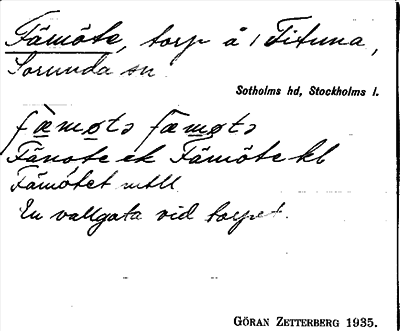 Fämöte, torp å Fituna,
Sorunda sn
Sotholms hd, Stockholms l.
fæ̀møtə fæmøtə
Fänote ek Fämöte kl
Fämötet mtll
En vallgata vid torpet.
GÖRAN ZETTERBERG 1935.